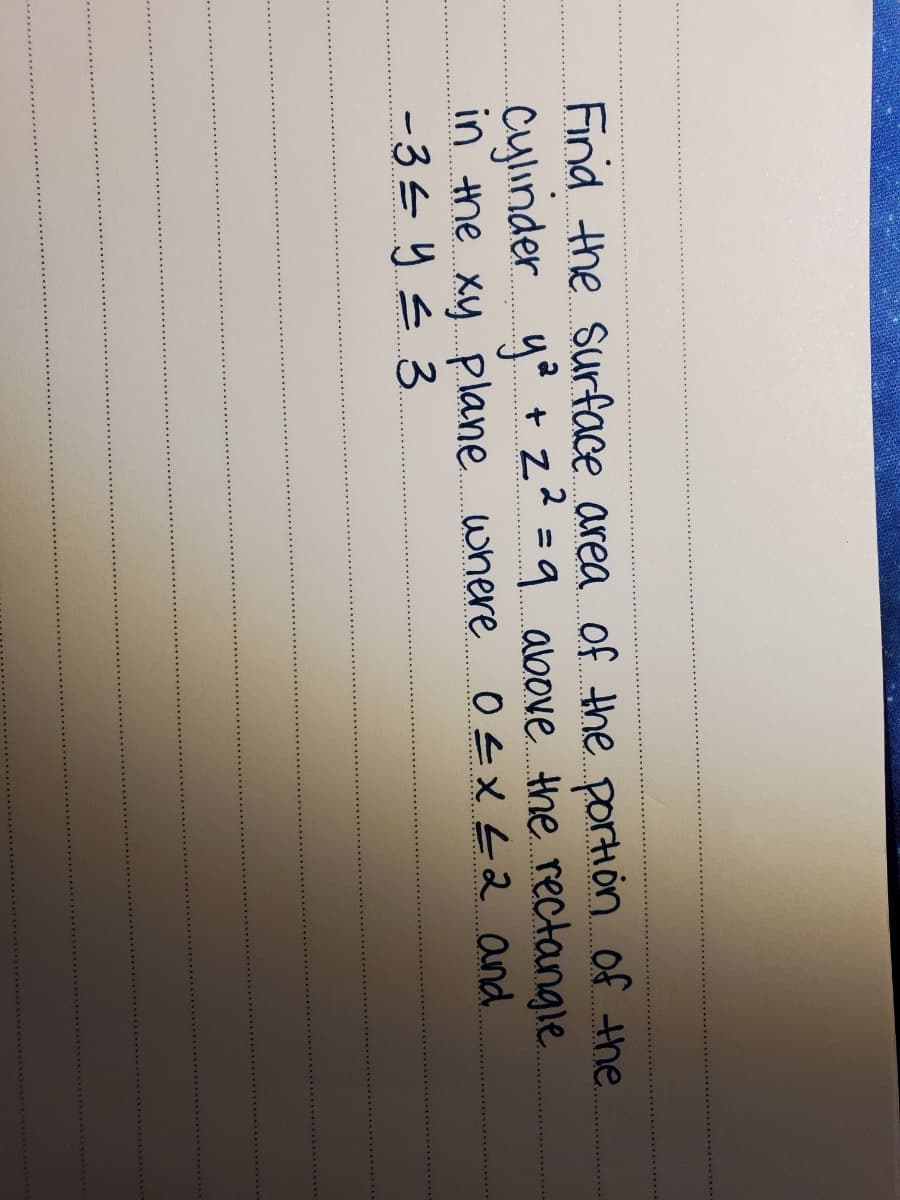 Find the surface area of the portion of the
cylinder y² + z² = 9 above the rectangle
in the xy plane where 0 ≤ x ≤ 2 and
-3 ≤ y ≤ 3